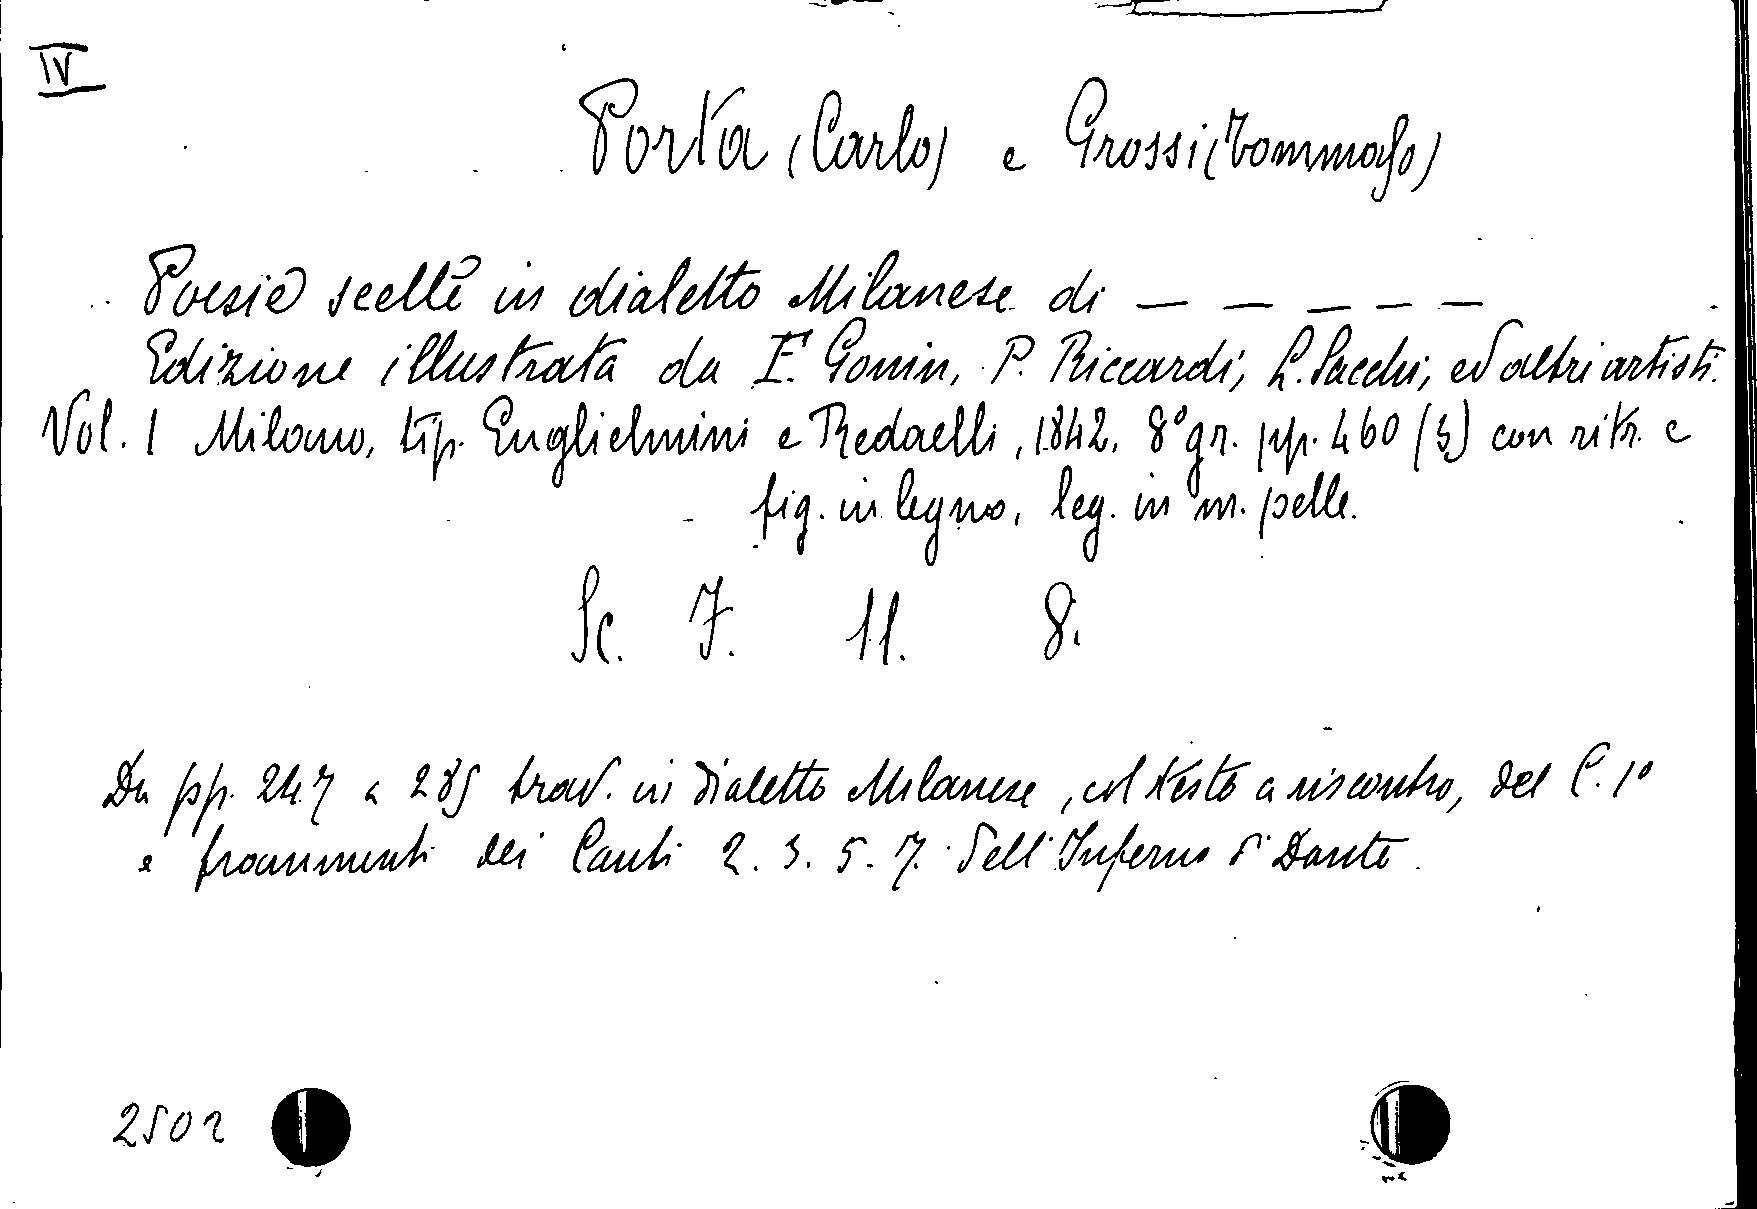 IV
Porta (Carlo) e Grossi (Tommaso)
Poesie scelte in dialetto Milanese di — — — — —
Edizione illustrata da F. Gonin, P. Riccardi, L. Sacchi, ed altri artisti.
Vol. 1 Milano, tip. Guglielmini e Redaelli, 1842. 8° gr. pp. 460 (3) con ritr. e
fig. in legno, leg. in m. pelle.
Sc. 7. 11. 8.
Da pp. 247 a 289 trad. in dialetto Milanese, col testo a riscontro, del C. 1°
e frammenti dei Canti 2. 3. 5. 7. dell'Inferno di Dante.
2502